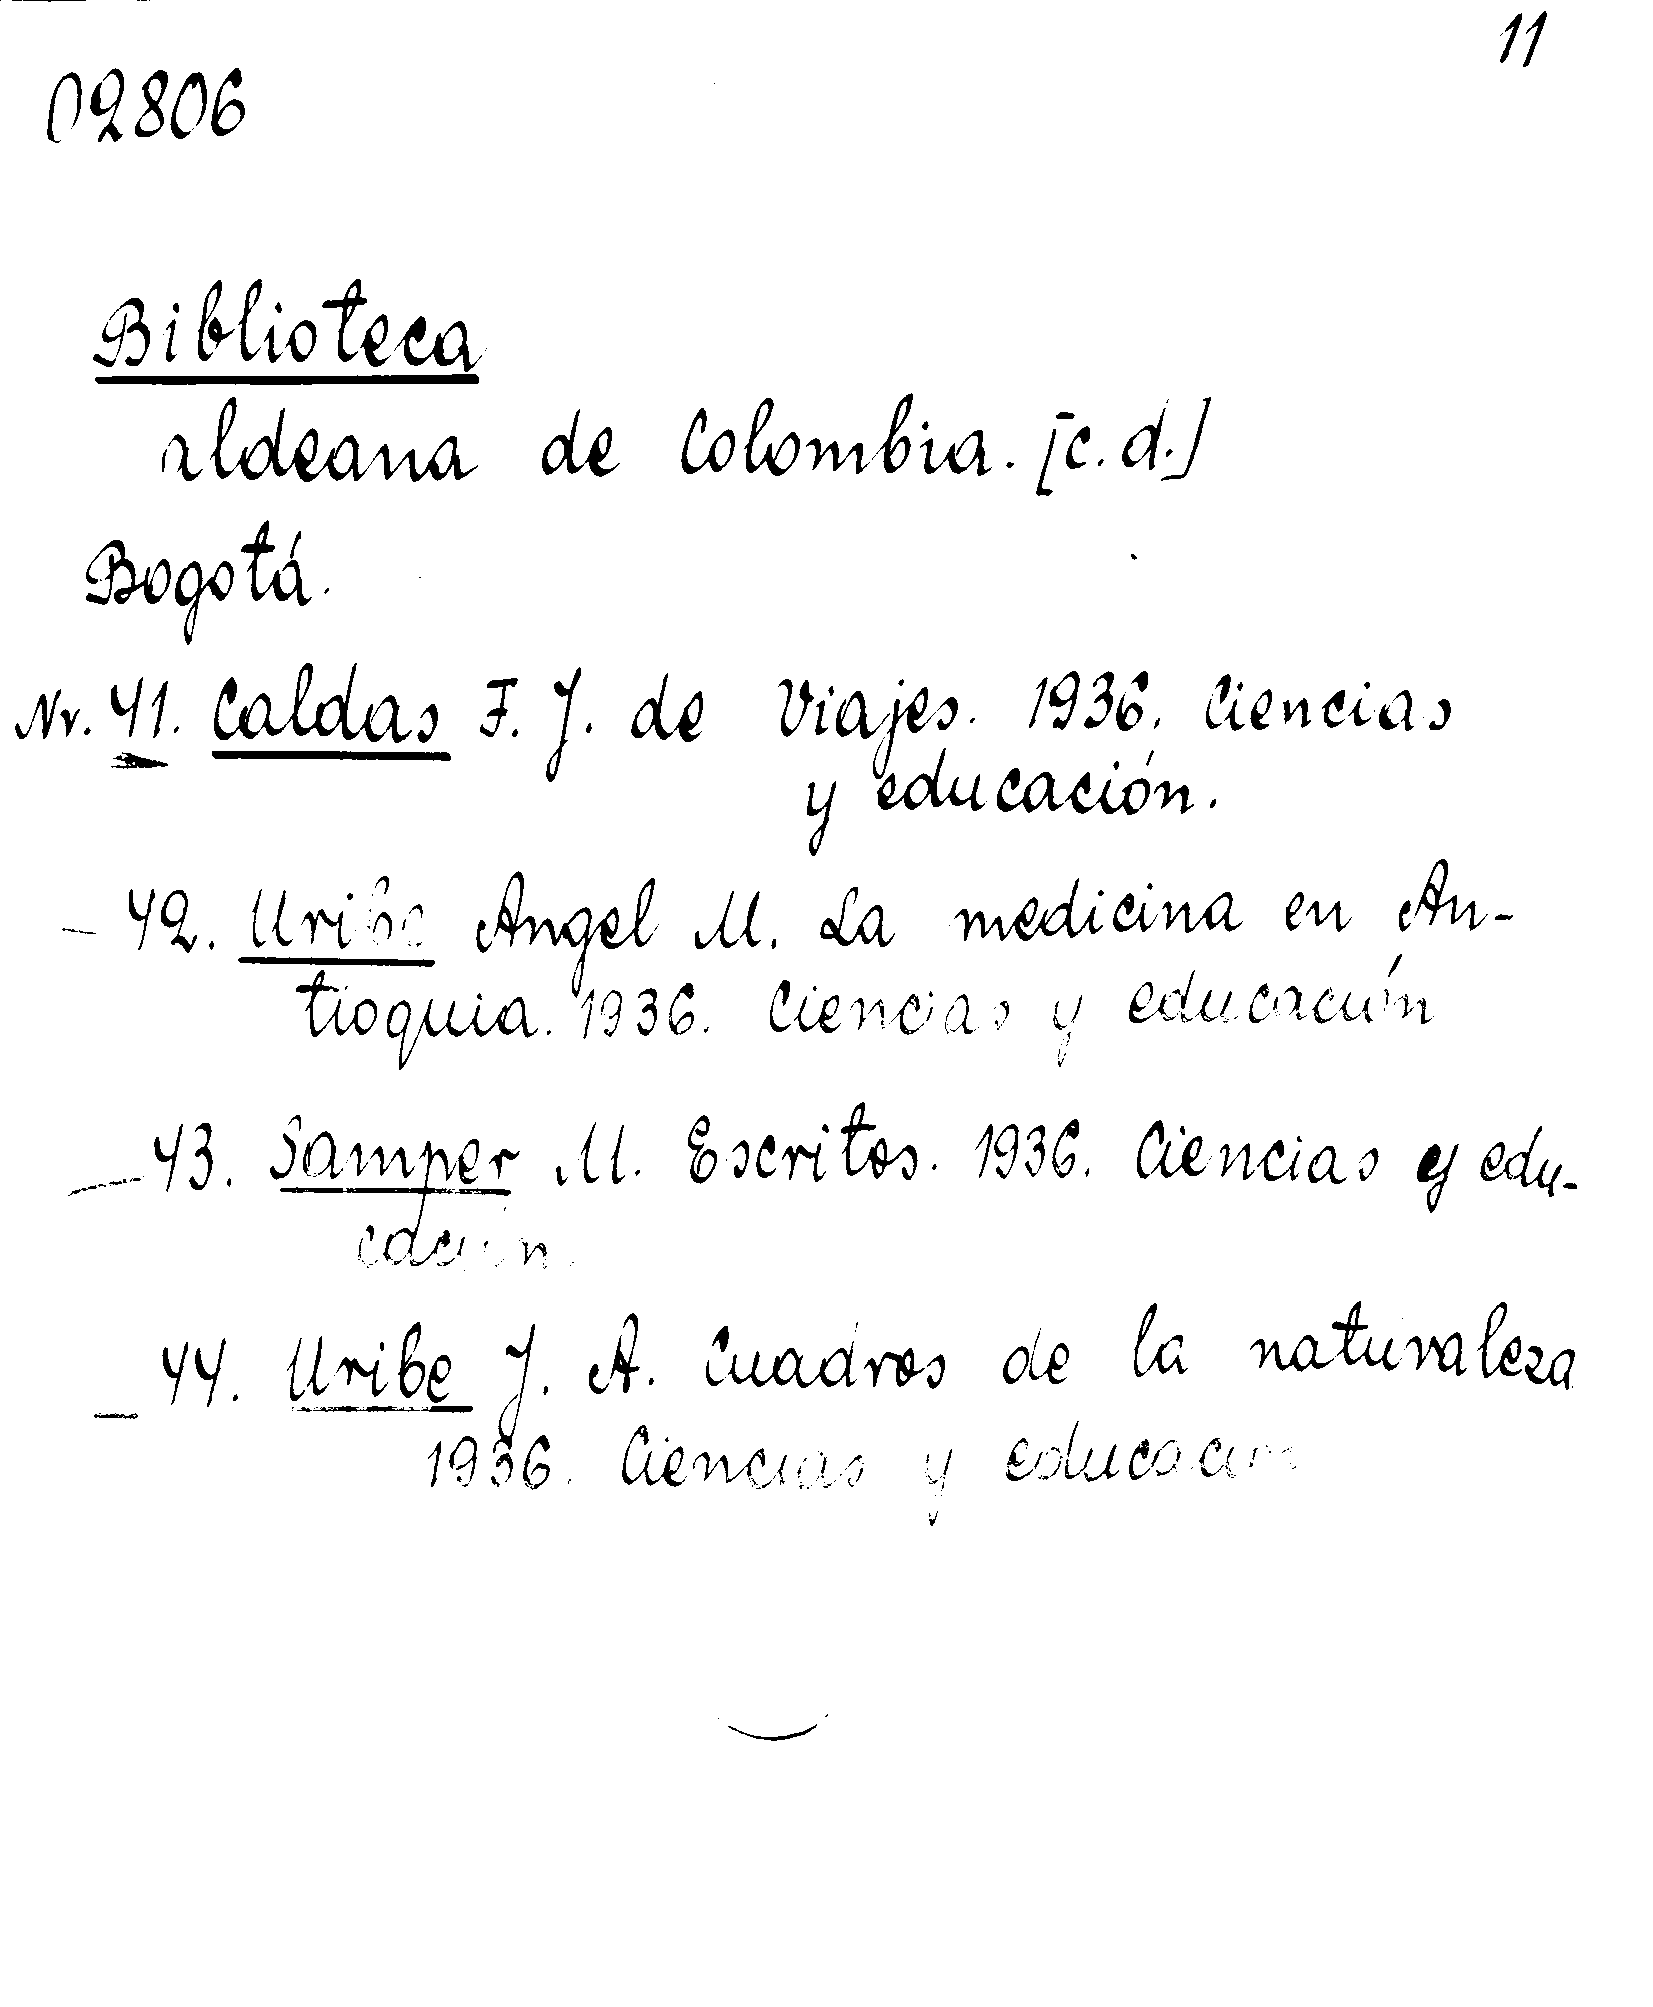 11
02806
Biblioteca
aldeana de Colombia. [c.d.]
Bogotá.
Nr. 41. Caldas F. J. de Viajes. 1936. Ciencias
y educación.
— 42. Uribe Angel M. La medicina en An-
tioquia. 1936. Ciencias y educación
— 43. Samper M. Escritos. 1936. Ciencias y edu-
cación.
— 44. Uribe J. A. Cuadros de la naturaleza
1936. Ciencias y educación